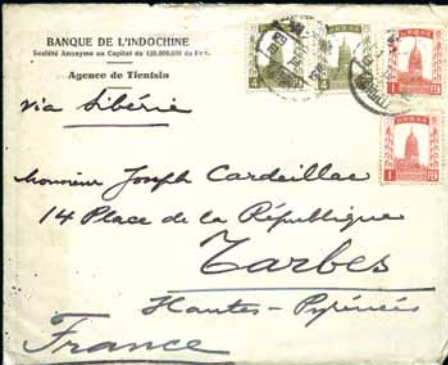 BANQUE DE L'INDOCHINE
Société Anonyme au Capital de 120.000.000 de Frs.
Agence de Tientsin
via Sibérie
Monsieur Joseph Cardeillac
14 Place de la République
Tarbes
Hautes-Pyrénées
France
4 4 1 FEN
1 FEN